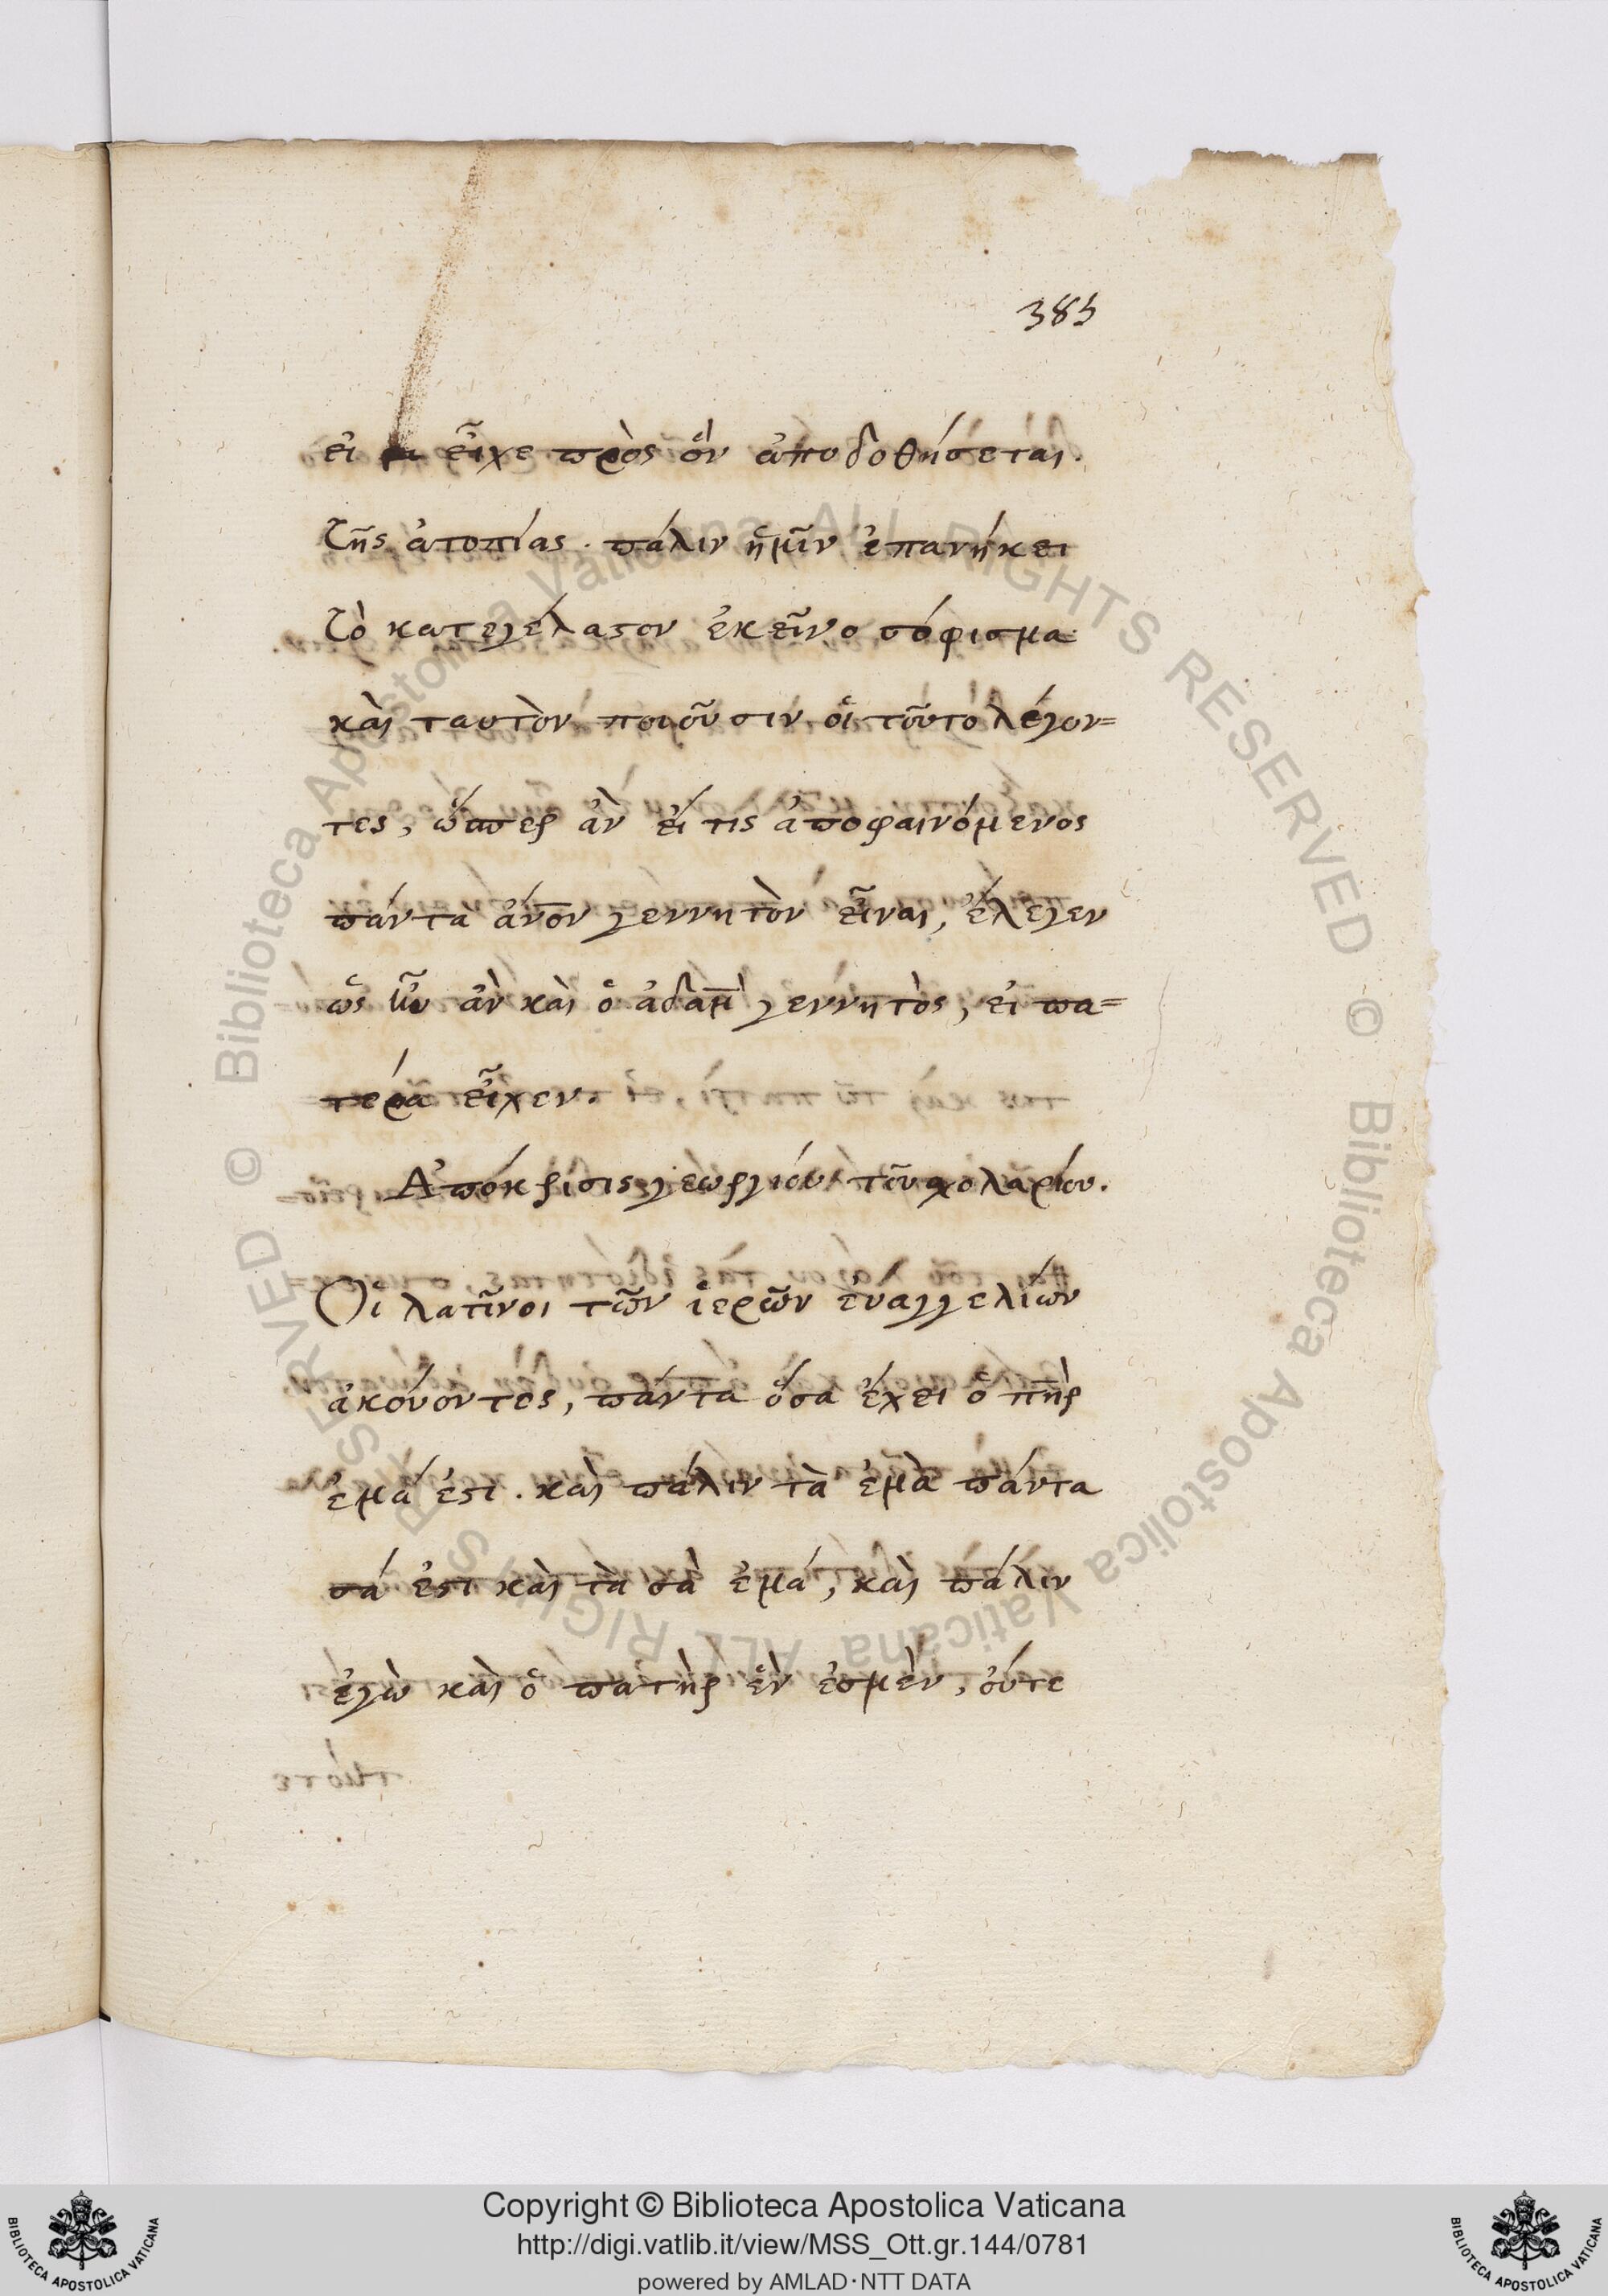 385
εἰ εἶχε πρὸς ὃν ἀποδοθήσεται.
τῆς ἀτοπίας. πάλιν ἡμῖν ἐπανήκει
τὸ κατεγέλαστον ἐκεῖνο σόφισμα
καὶ ταυτὸν ποιοῦσιν οἱ τοῦτο λέγον=
τες, ὥσπερ ἂν εἴ τις ἀποφαινόμενος
πάντα ἄνον γεννητὸν εἶναι, ἔλεγεν
ὡς ἦν ἂν καὶ ὁ ἀδὰμ γεννητὸς, εἰ πα=
τέρα εἶχεν.
Ἀπόκρισις γεωργίου τοῦ σχολαρίου.
Οἱ λατῖνοι τῶν ἱερῶν ἐυαγγελίων
ἀκούοντες, πάντα ὅσα ἔχει ὁ πὴρ
ἐμά ἐστι. καὶ πάλιν τὰ ἐμὰ πάντα
σά ἐστι καὶ τὰ σὰ ἐμά, καὶ πάλιν
ἐγὼ καὶ ὁ πατὴρ ἓν ἐσμὲν, οὔτε
© Biblioteca Apostolica Vaticana ALL RIGHTS RESERVED
© Biblioteca Apostolica Vaticana ALL RIGHTS RESERVED
Copyright © Biblioteca Apostolica Vaticana
http://digi.vatlib.it/view/MSS_Ott.gr.144/0781
powered by AMLAD·NTT DATA
BIBLIOTECA APOSTOLICA VATICANA
BIBLIOTECA APOSTOLICA VATICANA